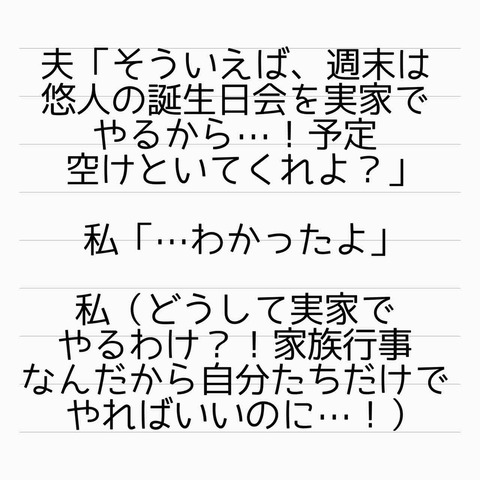 夫「そういえば、週末は
悠人の誕生日会を実家で
やるから…！予定
空けといてくれよ？」
私「…わかったよ」
私（どうして実家で
やるわけ？！家族行事
なんだから自分たちだけで
やればいいのに…！）